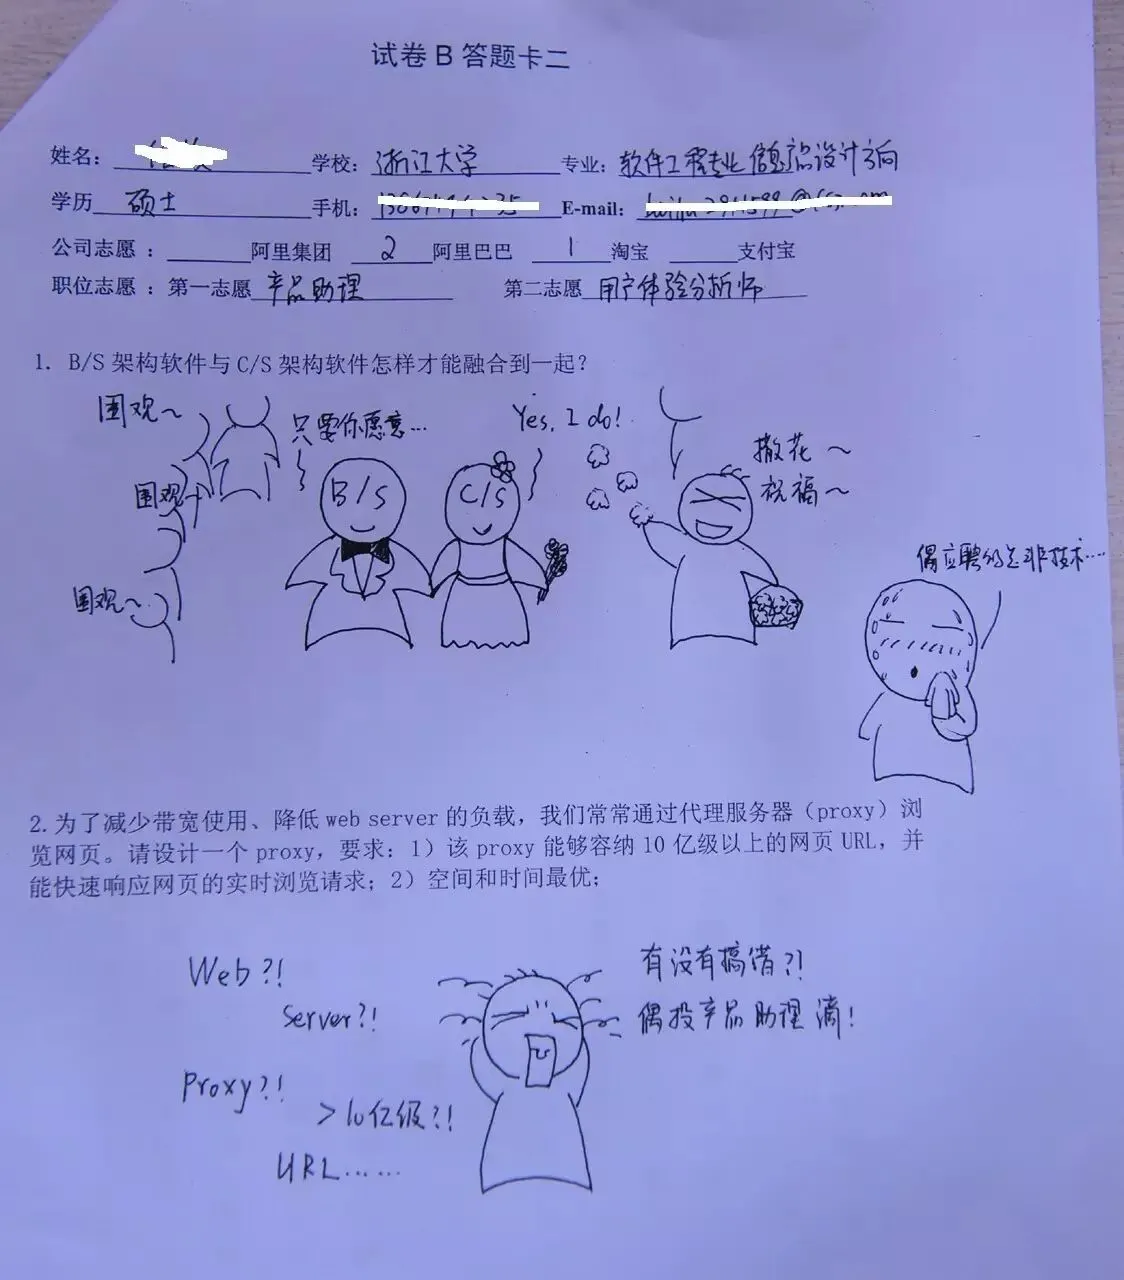 试卷 B 答题卡二
姓名： 学校：浙江大学 专业：软件工程专业 信息产品设计方向
学历 硕士 手机： E-mail：
公司志愿 ： 阿里集团 2 阿里巴巴 1 淘宝 支付宝
职位志愿 ：第一志愿 产品助理 第二志愿 用户体验分析师
1. B/S 架构软件与 C/S 架构软件怎样才能融合到一起？
围观~
只要你愿意…
Yes, I do!
撒花~
祝福~
围观~
B/S
C/S
围观~
偶应聘的是非技术…
2.为了减少带宽使用、降低 web server 的负载，我们常常通过代理服务器（proxy）浏
览网页。请设计一个 proxy，要求：1）该 proxy 能够容纳 10 亿级以上的网页 URL，并
能快速响应网页的实时浏览请求；2）空间和时间最优；
Web?!
Server?!
Proxy?!
>10亿级?!
URL……
有没有搞错?!
偶投产品助理滴!